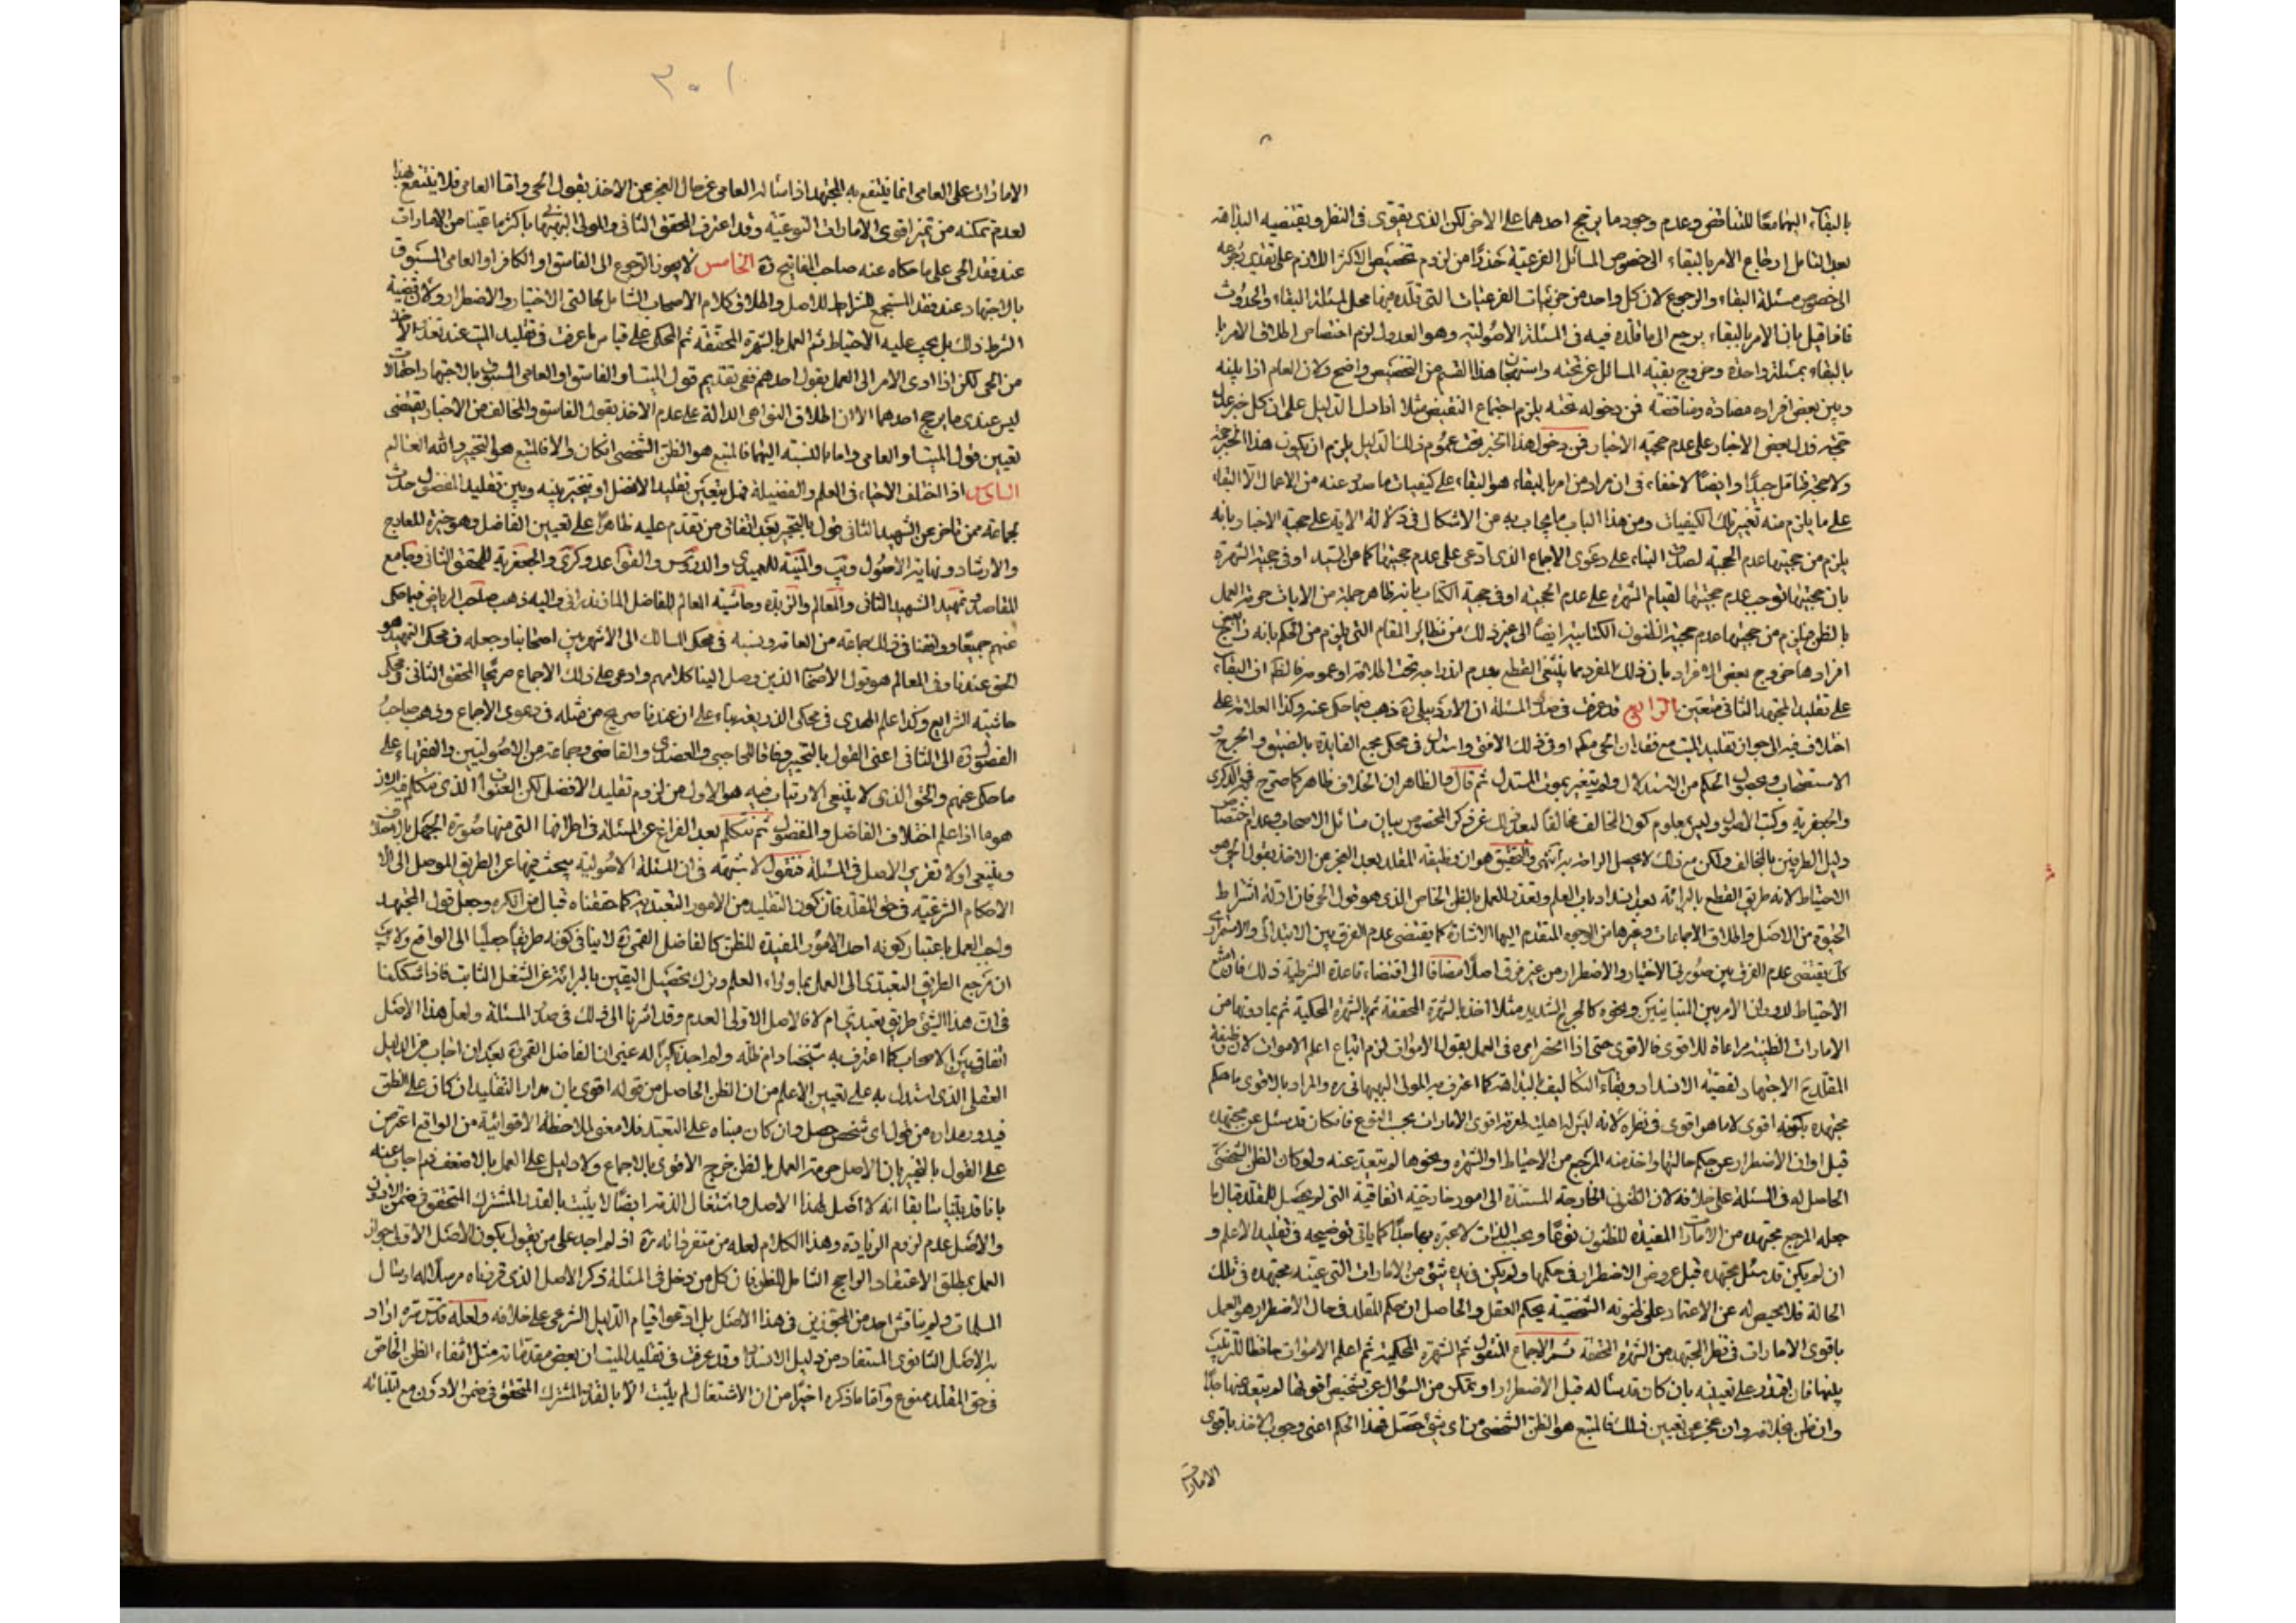 بالبقاء اليهما معًا للتناقض وعدم وجود ما يرجح احدهما على الاخر لكن الذى يقوى فى النظر ويقتضيه البداهة
بعد التامل ارجاع الامر بالبقاء الى خصوص المسائل الفرعية حذرًا من لزوم تخصيص الاكثر اللازم على تقدير رجوعه
الى خصوص مسئلة البقاء والرجوع لان كل واحد من جزئيات الفرعيات التى قلده فيها محل لمسئلة البقاء والحدوث
فاذا قيل بان الامر بالبقاء يرجع الى ما قلده فيه فى المسئلة الاصولية وهو العدول لزم اختصاص اطلاق الامر با
بالبقاء بمسئلة واحدة وخروج بقية المسائل عن تحته واستهجان هذا القسم من التخصيص واضح ولان العام اذا بلغه
وبين بعض افراده مضادة ومناقضة فمن دخوله تحته يلزم اجتماع النقيض مثلا اذا دل الدليل على ان كل خبر عدل
حجة فدل بعض الاخبار على عدم حجية الاخبار فمن دخول هذا الخبر تحت عموم ذلك الدليل يلزم ان يكون هذا الخبر حجة
ولا حجة فتامل جيدًا وايضًا لا خفاء فى ان مراد من امر بالبقاء هو البقاء على كيفيات ما صدر عنه من الاعمال لا البقاء
على ما يلزم منه تغيير تلك الكيفيات ومن هذا الباب ما يجاب به من الاشكال فى دلالة الاية على حجية الاخبار بانه
يلزم من حجيتها عدم الحجية لصدق النباء على دعوى الاجماع الذى ادعى على عدم حجيتها كما من السيد او فى حجية الشهرة
بان حجيتها توجب عدم حجيتها لقيام الشهرة على عدم الحجية او فى حجية الكتاب بانه ظاهر جملة من الايات حرمة العمل
بالظن فيلزم من حجيتها عدم حجية الظنون الكتابية ايضًا الى غير ذلك من نظائر المقام التى يلزم من الحكم بانه
افرادها خروج بعض الافراد بان ذلك الفرد مما ينبغى القطع بعدم اندراجه تحت اطلاقه او عمومه فالحكم ان البقاء
على تقليد المجتهد الثانى متعين الرابع قد عرفت فى صدر المسئلة ان الاردبيلى ره ذهب فيما حكى عنه وكذا العلامة على
اختلاف فيه الى جواز تقليد الميت مع فقدان الحى مكم اوفى ذلك الافتى واستدل فى محكى مجمع الفايدة بالضيق والحرج و
الاستصحاب وبحصول الحكم من الاستدلال ولم يتغير بموت المستدل ثم قال والظاهر ان الخلاف ظاهر كما صرح فى الذكرى
والجعفرية وكتب الاصول وليس معلوم كون المخالف مخالفًا لبعد ذلك عن ذكر المخصوص ببيان مسائل الاصحاب وعدم اختصاص
دليل الطرفين بالمخالف ولكن مع ذلك لا يحصل الراحة به انتهى والتحقيق هو ان وظيفة المقلد بعد العجز عن الاخذ بقول الحى هو
الاحتياط لانه طريق القطع بالبرائة بعد انسداد باب العلم وتعذر العمل بالظن الخاص الذى هو قول الحى فان ادلة اشتراط
الحيوة من الاصل واطلاق الاجماعات وغيرها من الوجوه المتقدم اليها الاشارة كما يقتضى عدم الفرق بين الابتدائى والاستمرارى
كك يقتضى عدم الفرق بين صورتى الاختيار والاضطرار من غير فرق اصلًا مضافا الى اقتضاء قاعدة الشرطية ذلك فان امتنع
الاحتياط لدوران الامر بين المتباينين ونحوه كالحرج الشديد مثلا اخذ بالشهرة المحققة ثم بالشهرة المحكية ثم بما دونها من
الامارات الظنية مراعاة للاقوى فالاقوى حتى اذا انحصر امره فى العمل بقول الاموات لزم اتباع اعلم الاموات لان وظيفة
المقلد ح الاجتهاد لقضية الانسداد وبقاء التكاليف بالبداهة كما اعترف به المولى البهبهانى ره والمراد بالاقوى ما حكم
مجتهده بكونه اقوى لا ما هو اقوى فى نظره لانه ليس له اهلية لمعرفة اقوى الامارات بحسب النوع فان كان قد سئل عن مجتهده
قبل اوان الاضطرار عن حكم حالتها واخذ منه المرجع من الاحتياط او الشهرة ونحوها لم يتعد عنه ولو كان الظن الشخصى
الحاصل له فى المسئلة على خلافه لان الظنون الخارجة المستندة الى امور خارجية اتفاقية التى لم يحصل للمقلد قبال ما
جعله المرجع مجتهده من الامارات المفيدة للظنون نوعًا وبحسب الذات لا عبرة بها جدًا كما ياتى توضيحه فى تقليد الاعلم و
ان لم يكن قد سئل مجتهده قبل عروض الاضطرار فى حكمها ولم يكن فى يده شئ من الامارات التى عينه مجتهده فى تلك
الحالة فلا محيص له عن الاعتماد على ظنونه الشخصية بحكم العقل والحاصل ان حكم المقلد فى حال الاضطرار هو العمل
باقوى الامارات فى نظر المجتهد من الشهرة المحققة ثم الاجماع المنقول ثم الشهرة المحكية ثم اعلم الاموات حافظا للترتيب
بينها فان اقتدر على تعيينه بان كان قد سئاله قبل الاضطرار او تمكن من السؤال عن تشخيص اقواها لم يتعد عنها جدًا
وان ظن بخلافه وان عجز عن تعيين ذلك فالمتبع هو الظن الشخصى من اى شئ حصل فهذا الحكم اعنى وجوب الاخذ باقوى
الامارات
٣٠١
الامارات على العامى انما ينتفع به المجتهد اذا سئاله العامى عن حال العجز عن الاخذ بقول الحى واما العامى فلا ينتفع بهذا
لعدم تمكنه من تميز اقوى الامارات النوعية وقد اعترف المحقق الثانى والمولى البهبهانى باكثر ما عينا من الامارات
عند فقد الحى على ما حكاه عنه صاحب المفاتيح ره الخامس لا يجوز الرجوع الى الفاسق او الكافر او العامى المسبوق
بالاجتهاد عند فقد المستجمع للشرائط للاصل واطلاق كلام الاصحاب الشامل لحالتى الاختيار والاضطرار ولان قضية
الشرط ذلك بل يجب عليه الاحتياط ثم العمل بالشهرة المحققة ثم المحكى على قياس ما عرفت فى تقليد الميت عند تعذر الاخذ
من الحى لكن اذا ادى الامر الى العمل بقول احدهم ففى تقديم قول الميت او الفاسق او العامى المسبوق بالاجتهاد احتمالات
ليس عندى ما يرجح احدهما الا ان اطلاق النواهى الدالة على عدم الاخذ بقول الفاسق والمخالف من الاخبار يقتضى
تعيين قول الميت او العامى واما بالنسبة اليهما فالمتبع هو الظن الشخصى ان كان والا فالمتبع هو التخيير والله العالم
السادس اذا اختلف الاحياء فى العلم والفضيلة فهل يتعين تقليد الافضل او يتخير بينه وبين تقليد المفضول حدث
لجماعة ممن تاخر عن الشهيد الثانى قول بالتخيير بعد اتفاق من تقدم عليه ظاهرًا على تعيين الفاضل وهو خيرة المعارج
والارشاد ونهاية الاصول ويب والمنية للعميدى والدروس والقواعد وكرى والجعفرية للمحقق الثانى وجامع
المقاصد وتمهيد الشهيد الثانى والمعالم والزبدة وحاشية المعالم للفاضل المازندرانى واليه ذهب صاحب الرياض فيما حكى
عنهم جميعًا ووافقنا فى ذلك جماعة من العامة ونسبه فى محكى المسالك الى الاشهر بين اصحابنا وجعله فى محكى التمهيد هو
الحق عندنا وفى المعالم هو قول الاصحاب الذين وصل الينا كلامهم وادعى على ذلك الاجماع صريحًا المحقق الثانى فى محكى
حاشية الشرايع وكذا علم الهدى فى محكى الذريعة بناء على ان عندنا صريح من مثله فى دعوى الاجماع وذهب صاحب
الفصول ره الى الثانى اعنى القول بالتخيير وفاقا للحاجبى والعضدى والقاضى وجماعة من الاصوليين والفقهاء على
ما حكى عنهم والحق الذى لا ينبغى الارتياب فيه هو الاول من لزوم تقليد الافضل لكن العنوان الذى نتكلم فيه الان
هو ما اذا علم اختلاف الفاضل والمفضول ثم نتكلم بعد الفراغ عن المسئلة فى اطرافها التى منها صورة الجهل بالاختلاف
وينبغى اولا تقرير الاصل فى المسئلة فنقول لا شبهة فى ان المسئلة الاصولية يبحث فيها عن الطريق الموصل الى الا
الاحكام الشرعية فى حق المقلد فان كون التقليد من الامور التعبدية كما حققناه قبال من انكره وجعل قول المجتهد
واجب العمل باعتبار كونه احد الامور المفيدة للظن كالفاضل القمى ره لا ينافى كونه طريقًا جعليًا الى الواقع ولا ريب
ان مرجع الطريق التعبدى الى العمل بما وراء العلم وترك تحصيل اليقين بالبرائة عن الشغل الثابت فاذا شككنا
فى ان هذا الشئ طريق تعبدى ام لا فالاصل الاولى العدم وقد اشرنا الى ذلك فى صدر المسئلة ولعل هذا الاصل
اتفاقى بين الاصحاب كما اعترف به شيخنا دام ظله ولم اجد نكيرًا له غير ان الفاضل القمى ره بعد ان اجاب عن الدليل
العقلى الذى استدل به على تعيين الاعلم من ان الظن الحاصل من قوله اقوى بان مدار التقليد ان كان على الظن
فيدور مداره من قول اى شخص حصل وان كان مبناه على التعبد فلا معنى لملاحظة الاقوائية من الواقع اعترض
على القول بالتخيير بان الاصل حرمة العمل بالظن خرج الاقوى بالاجماع ولا دليل على العمل بالاضعف ثم اجاب عنه
بانا قد بينا سابقا انه لا اصل لهذا الاصل واشتغال الذمة ايضًا لا يثبت بالقدر المشترك المتحقق فى ضمن الادون
والاصل عدم لزوم الزيادة وهذا الكلام لعله من متفرداته ره اذ لم اجد على من يقول بكون الاصل الاولى جواز
العمل بمطلق الاعتقاد الراجح الشامل للظن فان كل من دخل فى المسئلة ذكر الاصل الذى قررناه مرسلًا له ارسال
المسلمات ولم يناقش احد من المجوزين فى هذا الاصل بل ادعوا قيام الدليل الشرعى على خلافه ولعله قدس سره اراد
به الاصل الثانوى المستفاد من دليل الانسداد وقد عرفت فى تقليد الميت ان بعض مقدماته مثل انتفاء الظن الخاص
فى حق المقلد ممنوع واما ما ذكره اخيرًا من ان الاشتغال لم يثبت الا بالقدر المشترك المتحقق فى ضمن الادون مع